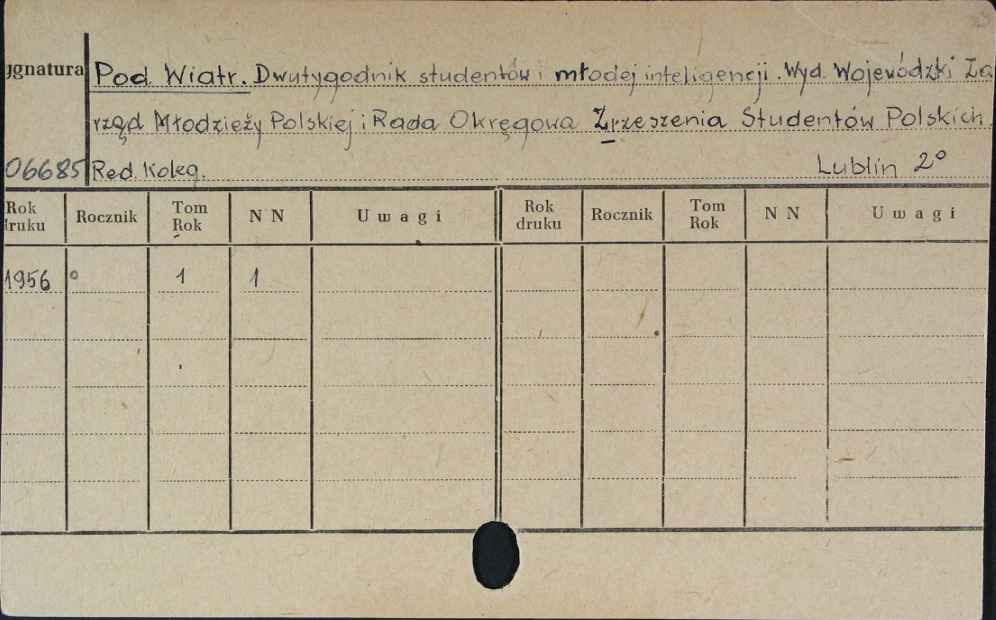 ygnatura Pod Wiatr. Dwutygodnik studentów i młodej inteligencji. Wyd. Wojewódzki Za
rząd Młodzieży Polskiej i Rada Okręgowa Zrzeszenia Studentów Polskich.
06685 Red. Koleg. Lublin 2°
Rok druku Rocznik Tom Rok N N Uwagi Rok druku Rocznik Tom Rok N N Uwagi
1956 1 1